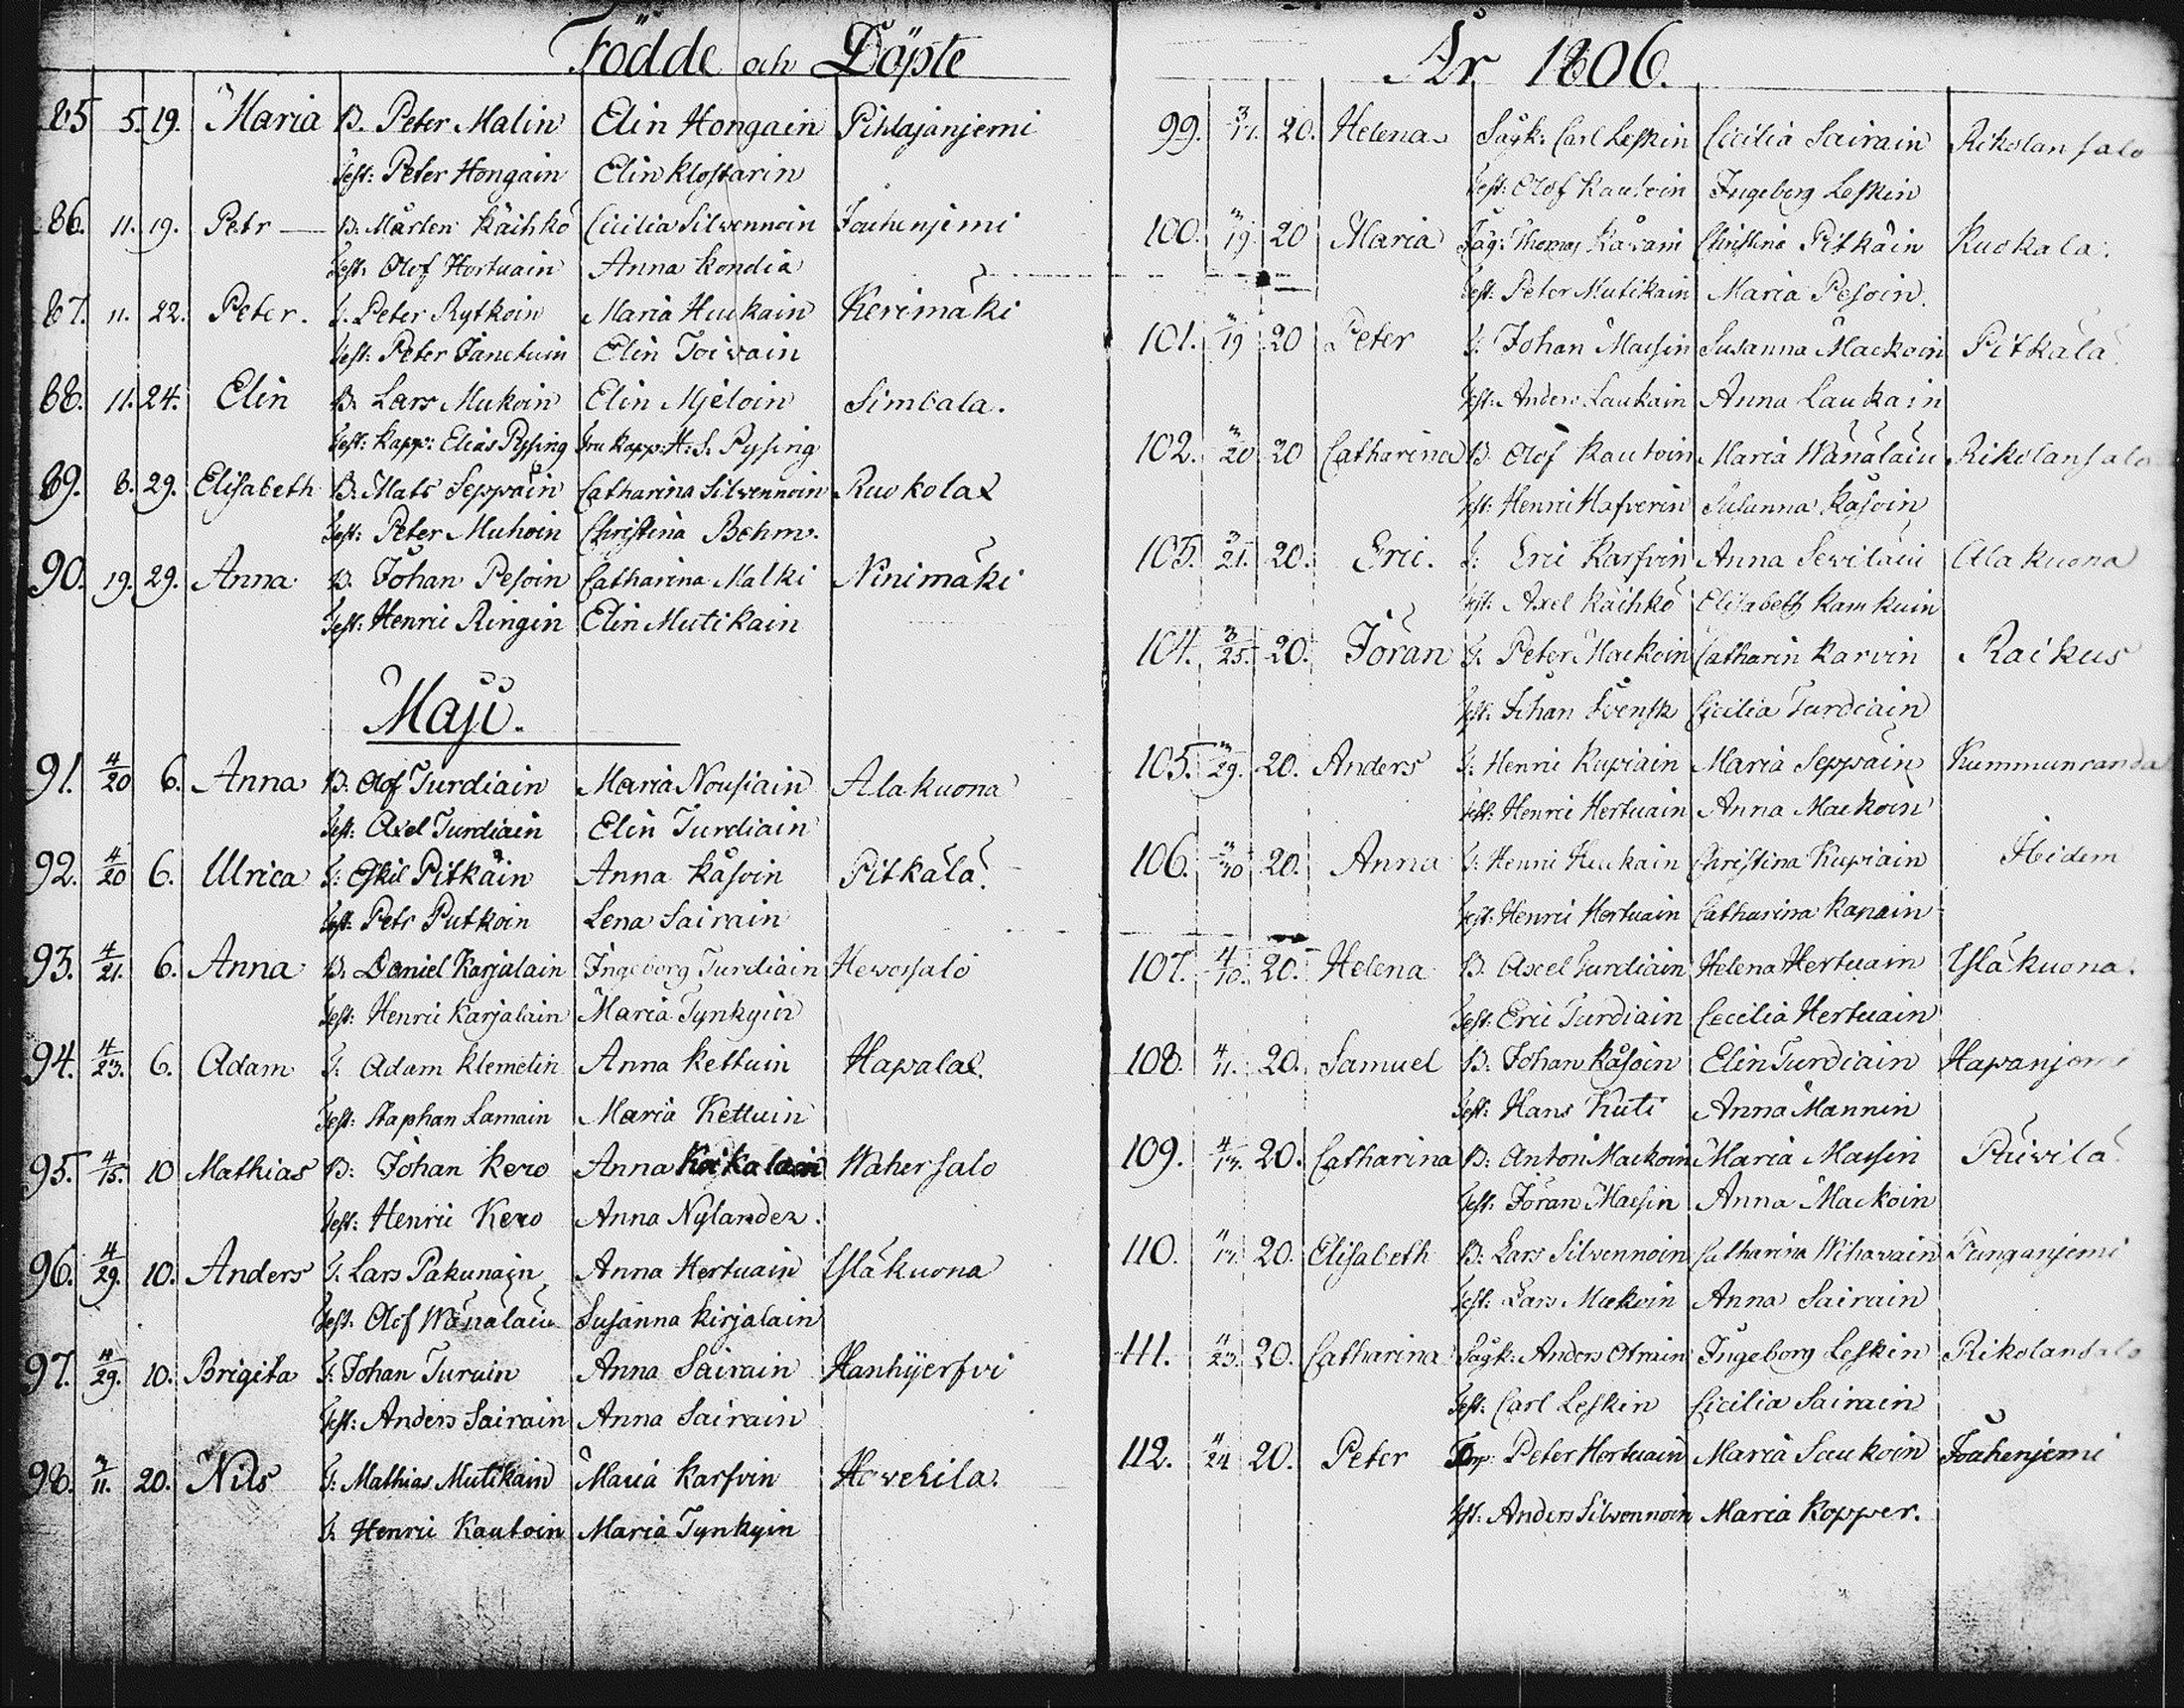 Födde och Döpte
85 5. 19. Maria B. Peter Malin Elin Hongain Pihlajanjemi
Test: Peter Hongain Elin Klostarin
86. 11. 19. Petr — B. Mårten Käihkö Cicilia Silvennoin Jouhenjemi
Test: Olof Hortuain Anna Kondia
87. 11. 22. Peter. T. Peter Rytkoin Maria Huukain Kerimäki
Test: Peter Janetuin Elin Toivain
88. 11. 24. Elin B. Lars Mukoin Elin Mjeloin Simbala.
Test: Kapp: Elias Pyssing fru Kapp: H. S. Pyssing
89. 8. 29. Elisabeth B. Mats Seppäin Catharina Silvennoin Ruokolax
Test: Peter Muhoin Christina Behm.
90. 19. 29. Anna B. Johan Pesoin Catharina Malki Ninimäki
Test: Henric Ringin Elin Mutikain
Maji.
91. 4/20 6. Anna B. Olof Turdiain Maria Nousiain Alakuona
Test: Axel Turdiain Elin Turdiain
92. 4/20 6. Ulrica T: Eskil Pitkäin Anna Kåsoin Pitkälä.
Test: Petr Putkoin Lena Sairain
93. 4/21. 6. Anna B. Daniel Karjalain Ingeborg Turdiain Hevossalo
Test: Henric Karjalain Maria Tynkyin
94. 4/23. 6. Adam T. Adam Klemetin Anna Kettuin Hapalax.
Test: Staphan Lamain Maria Kettuin
95. 4/15. 10 Mathias B: Johan Kero Anna Koikalain Wahersalo
Test: Henric Kero Anna Nylander.
96. 4/29. 10. Anders T. Lars Pakunain Anna Hertuain Yläkuona
Test. Olof Wänäläin Susanna Kirjalain
97. 4/29. 10. Brigita T: Johan Turuin Anna Sairain Hanhijerfvi
Test: Anders Sairain Anna Sairain
98. 3/11. 20. Nils T: Mathias Mutikain Maria Karfvin Hovehila.
T. Henric Kautoin Maria Tynkyin
År 1806.
99. 3/17. 20. Helena Sågk: Carl Leskin Cicilia Sairain Rikolansalo
Test: Olof Kautoin Ingeborg Leskin
100. "/19. 20 Maria Såg: Thomas Kåvain Christina Pitkäin Kuokala.
Test: Peter Mutikain Maria Pesoin.
101. "/19 20 Peter T. Johan Massin Susanna Mackoin Pitkälä
Test: Anders Laukain Anna Laukain
102. "/20 20 Catharina B. Olof Kautoin Maria Wänäläin Rikolansalo
Test: Henric Hafverin Susanna Kåsoin
103. 3/21. 20. Eric. T: Eric Karfvin Anna Seviläin Alakuona
Test. Axel Käihkö Elisabeth Kamkuin
104. 3/25. 20. Jöran T. Peter Mackoin Catharin Karvin Raikus
Test. Johan Svensk Cicilia Turdiain
105. "/29. 20. Anders T: Henric Kupiain Maria Seppäin Kummunranda
Test: Henric Hertuain Anna Mackoin
106. "/30 20. Anna T: Henric Huukain Christina Kupiain Ibidem
Test: Henric Hortuain Catharina Kapain
107. 4/10. 20. Helena B. Axel Turdiain Helena Hertuain Yläkuona.
Test: Eric Turdiain Cecilia Hertuain
108. 4/11. 20. Samuel B: Johan Kåsoin Elin Turdiain Hapanjemi
Test: Hans Kuti Anna Mannin
109. 4/13. 20. Catharina B: Anton Mackoin Maria Massin Päivilä
Test. Jöran Massin Anna Mackoin
110. "/13. 20. Elisabeth B: Lars Silvennoin Catharina Wihavain Punganjemi
Test: Lars Mukoin Anna Sairain
111. "/23. 20. Catharina Sågk: Anders Otrain Ingeborg Leskin Rikolansalo
Test. Carl Leskin Cicilia Sairain
112. "/24 20. Peter Torp: Peter Hortuain Maria Saukoin Jouhenjemi
Test. Anders Silvennoin Maria Kopper.